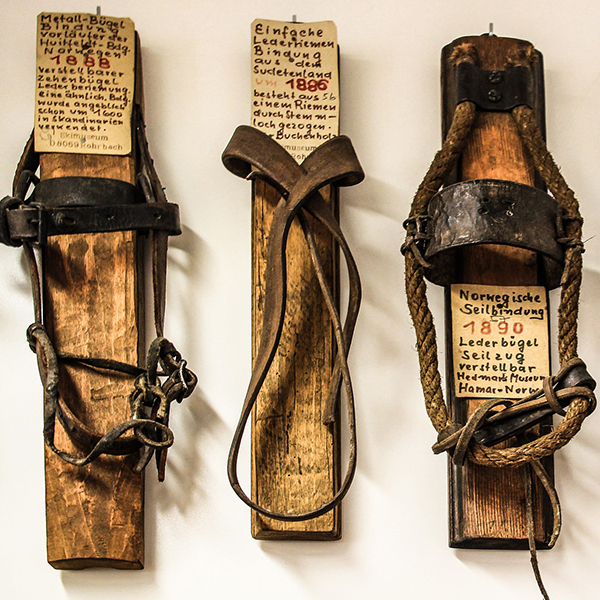 Metall-Bügel
Bindung
vorläufer der
Huitfeldt-Bdg.
Norwegen
1888
verstellbarer
Zehenbügel
Lederberiemung,
eine ähnlich. Bdg.
wurde angeblich
schon um 1600
in Skandinavien
verwendet.
Skimuseum
D8069 Rohrbach
Einfache
Lederriemen
Bindung
aus dem
Sudetenland
um 1886
besteht aus
einem Riemen
durch Stemm-
loch gezogen.
Buchenholz
museum
Norwegische
Seilbindung
1890
Lederbügel
Seilzug
verstellbar
Hedmark Museum
Hamar-Norw